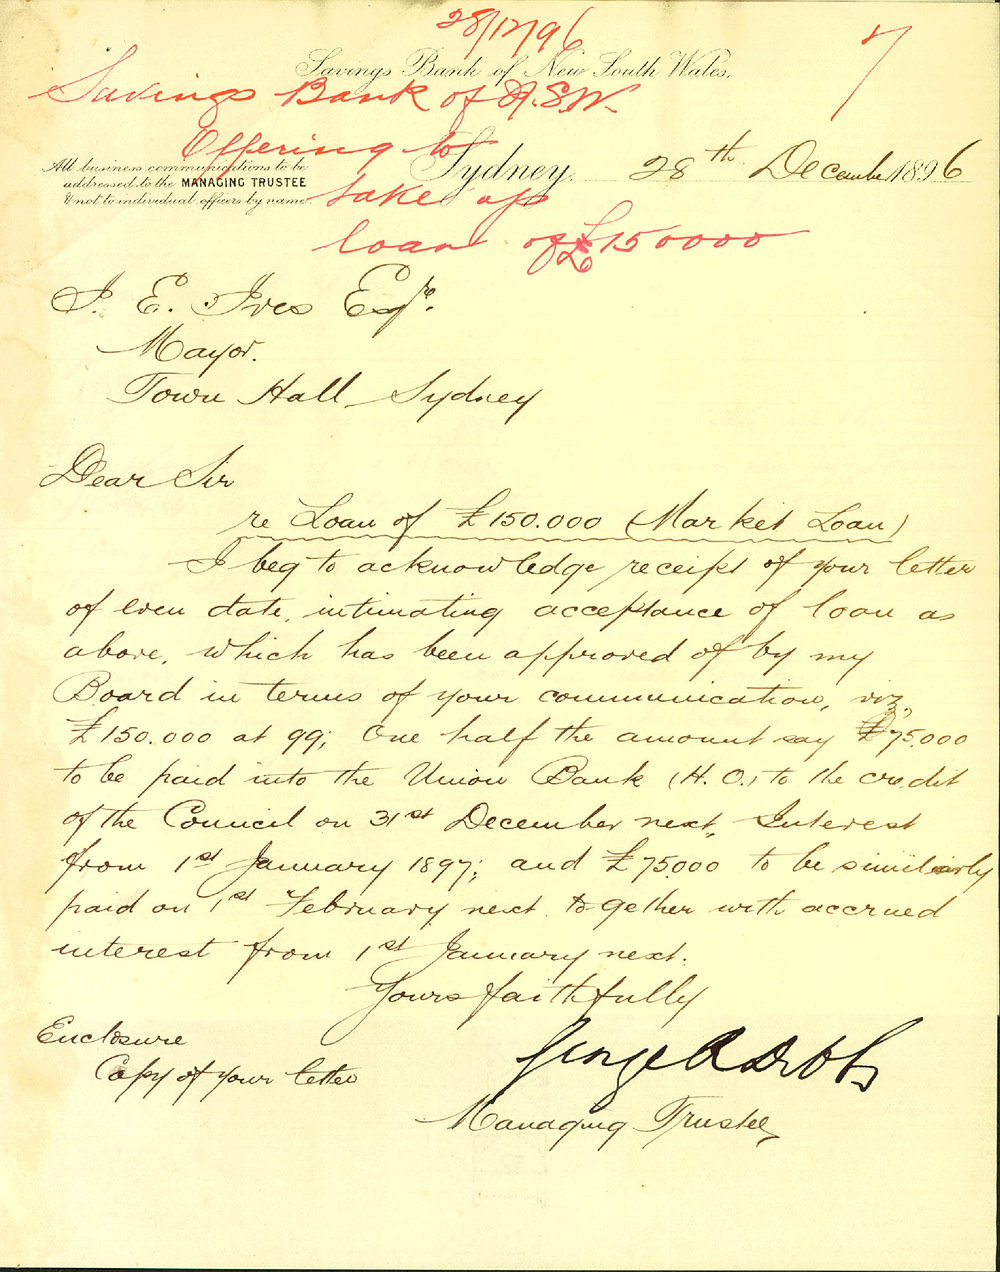 28/12/96
7
Savings Bank of New South Wales.
Savings Bank of N.S.W.
Offering to
take up
loan of £150000
All business communications to be
addressed to the MANAGING TRUSTEE
& not to individual officers by name.
Sydney, 28th December 1896
I. E. Ives Esqre.
Mayor.
Town Hall Sydney
Dear Sir
re Loan of £150.000 (Market Loan)
I beg to acknowledge receipt of your letter
of even date, intimating acceptance of loan as
above, which has been approved of by my
Board in terms of your communication, viz,
£150.000 at 99; One half the amount say £75.000
to be paid into the Union Bank (H.O.) to the credit
of the Council on 31st December next, Interest
from 1st January 1897; and £75.000 to be similarly
paid on 1st February next together with accrued
interest from 1st January next.
Yours faithfully
Enclosure
Copy of your letter
George
Managing Trustee